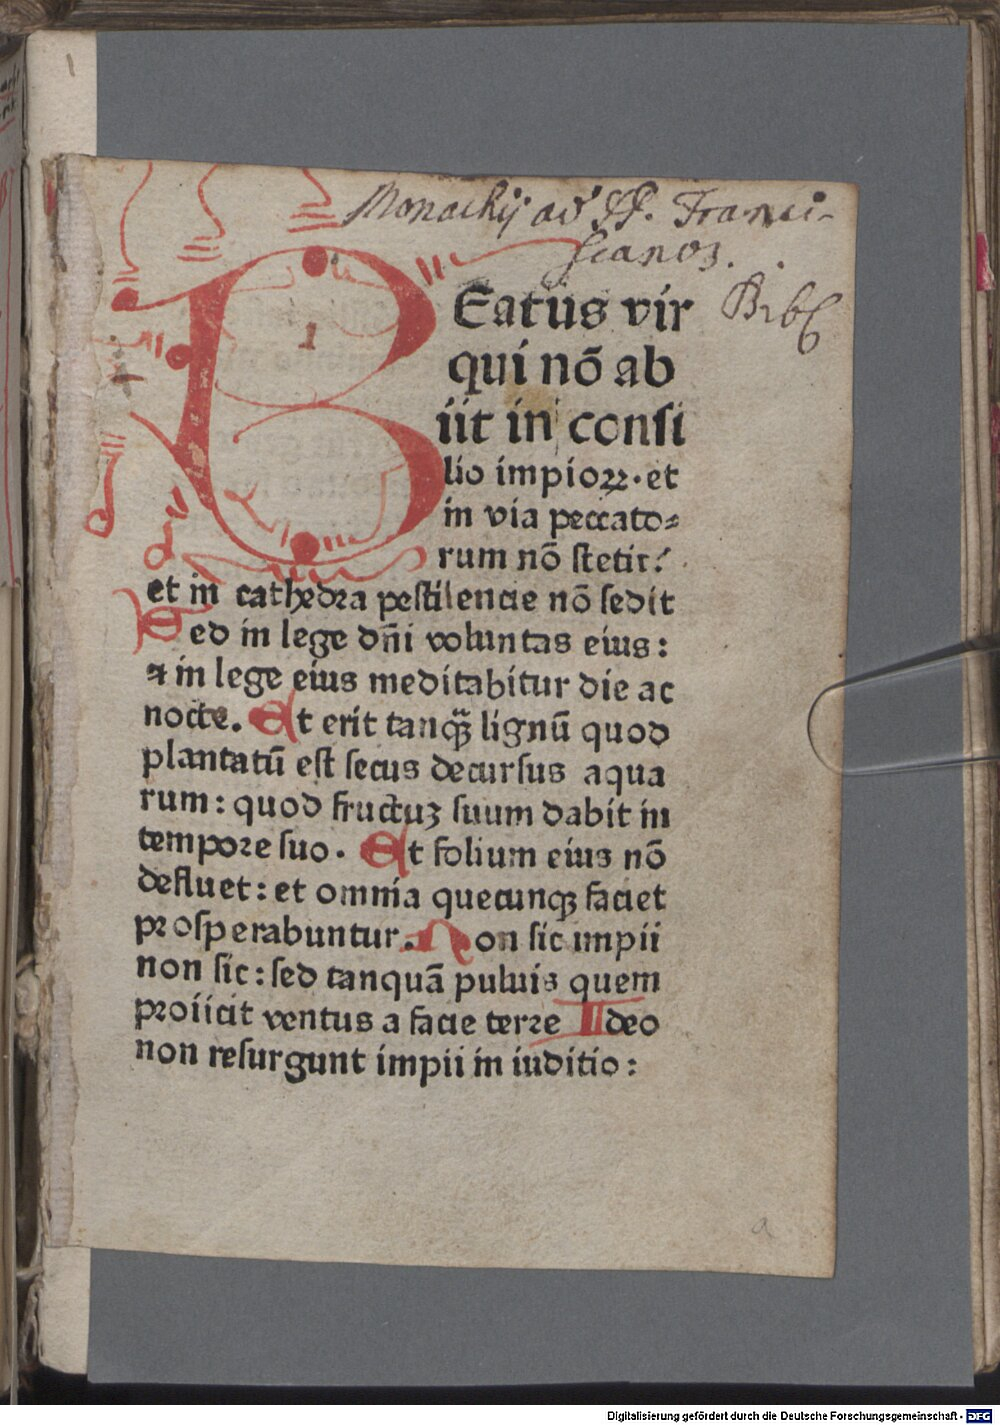 1
Monachij ad FF. Franci-
scanos.
Bibl
BEatus vir
1
qui nō ab
iit in consi
lio impioꝝ·et
in via peccato⸗
rum nō stetit:
et in cathedra pestilencie nō sedit
Sed in lege dn̄i voluntas eius:
⁊ in lege eius meditabitur die ac
nocte. Et erit tanqȝ lignū quod
plantatū est secus decursus aqua
rum: quod fructuȝ suum dabit in
tempore suo. Et folium eius nō
defluet: et omnia quecunqȝ faciet
prosperabuntur. Non sic impii
non sic: sed tanquā puluis quem
proiicit ventus a facie terre Ideo
non resurgunt impii in iuditio:
a
Digitalisierung gefördert durch die Deutsche Forschungsgemeinschaft - DFG